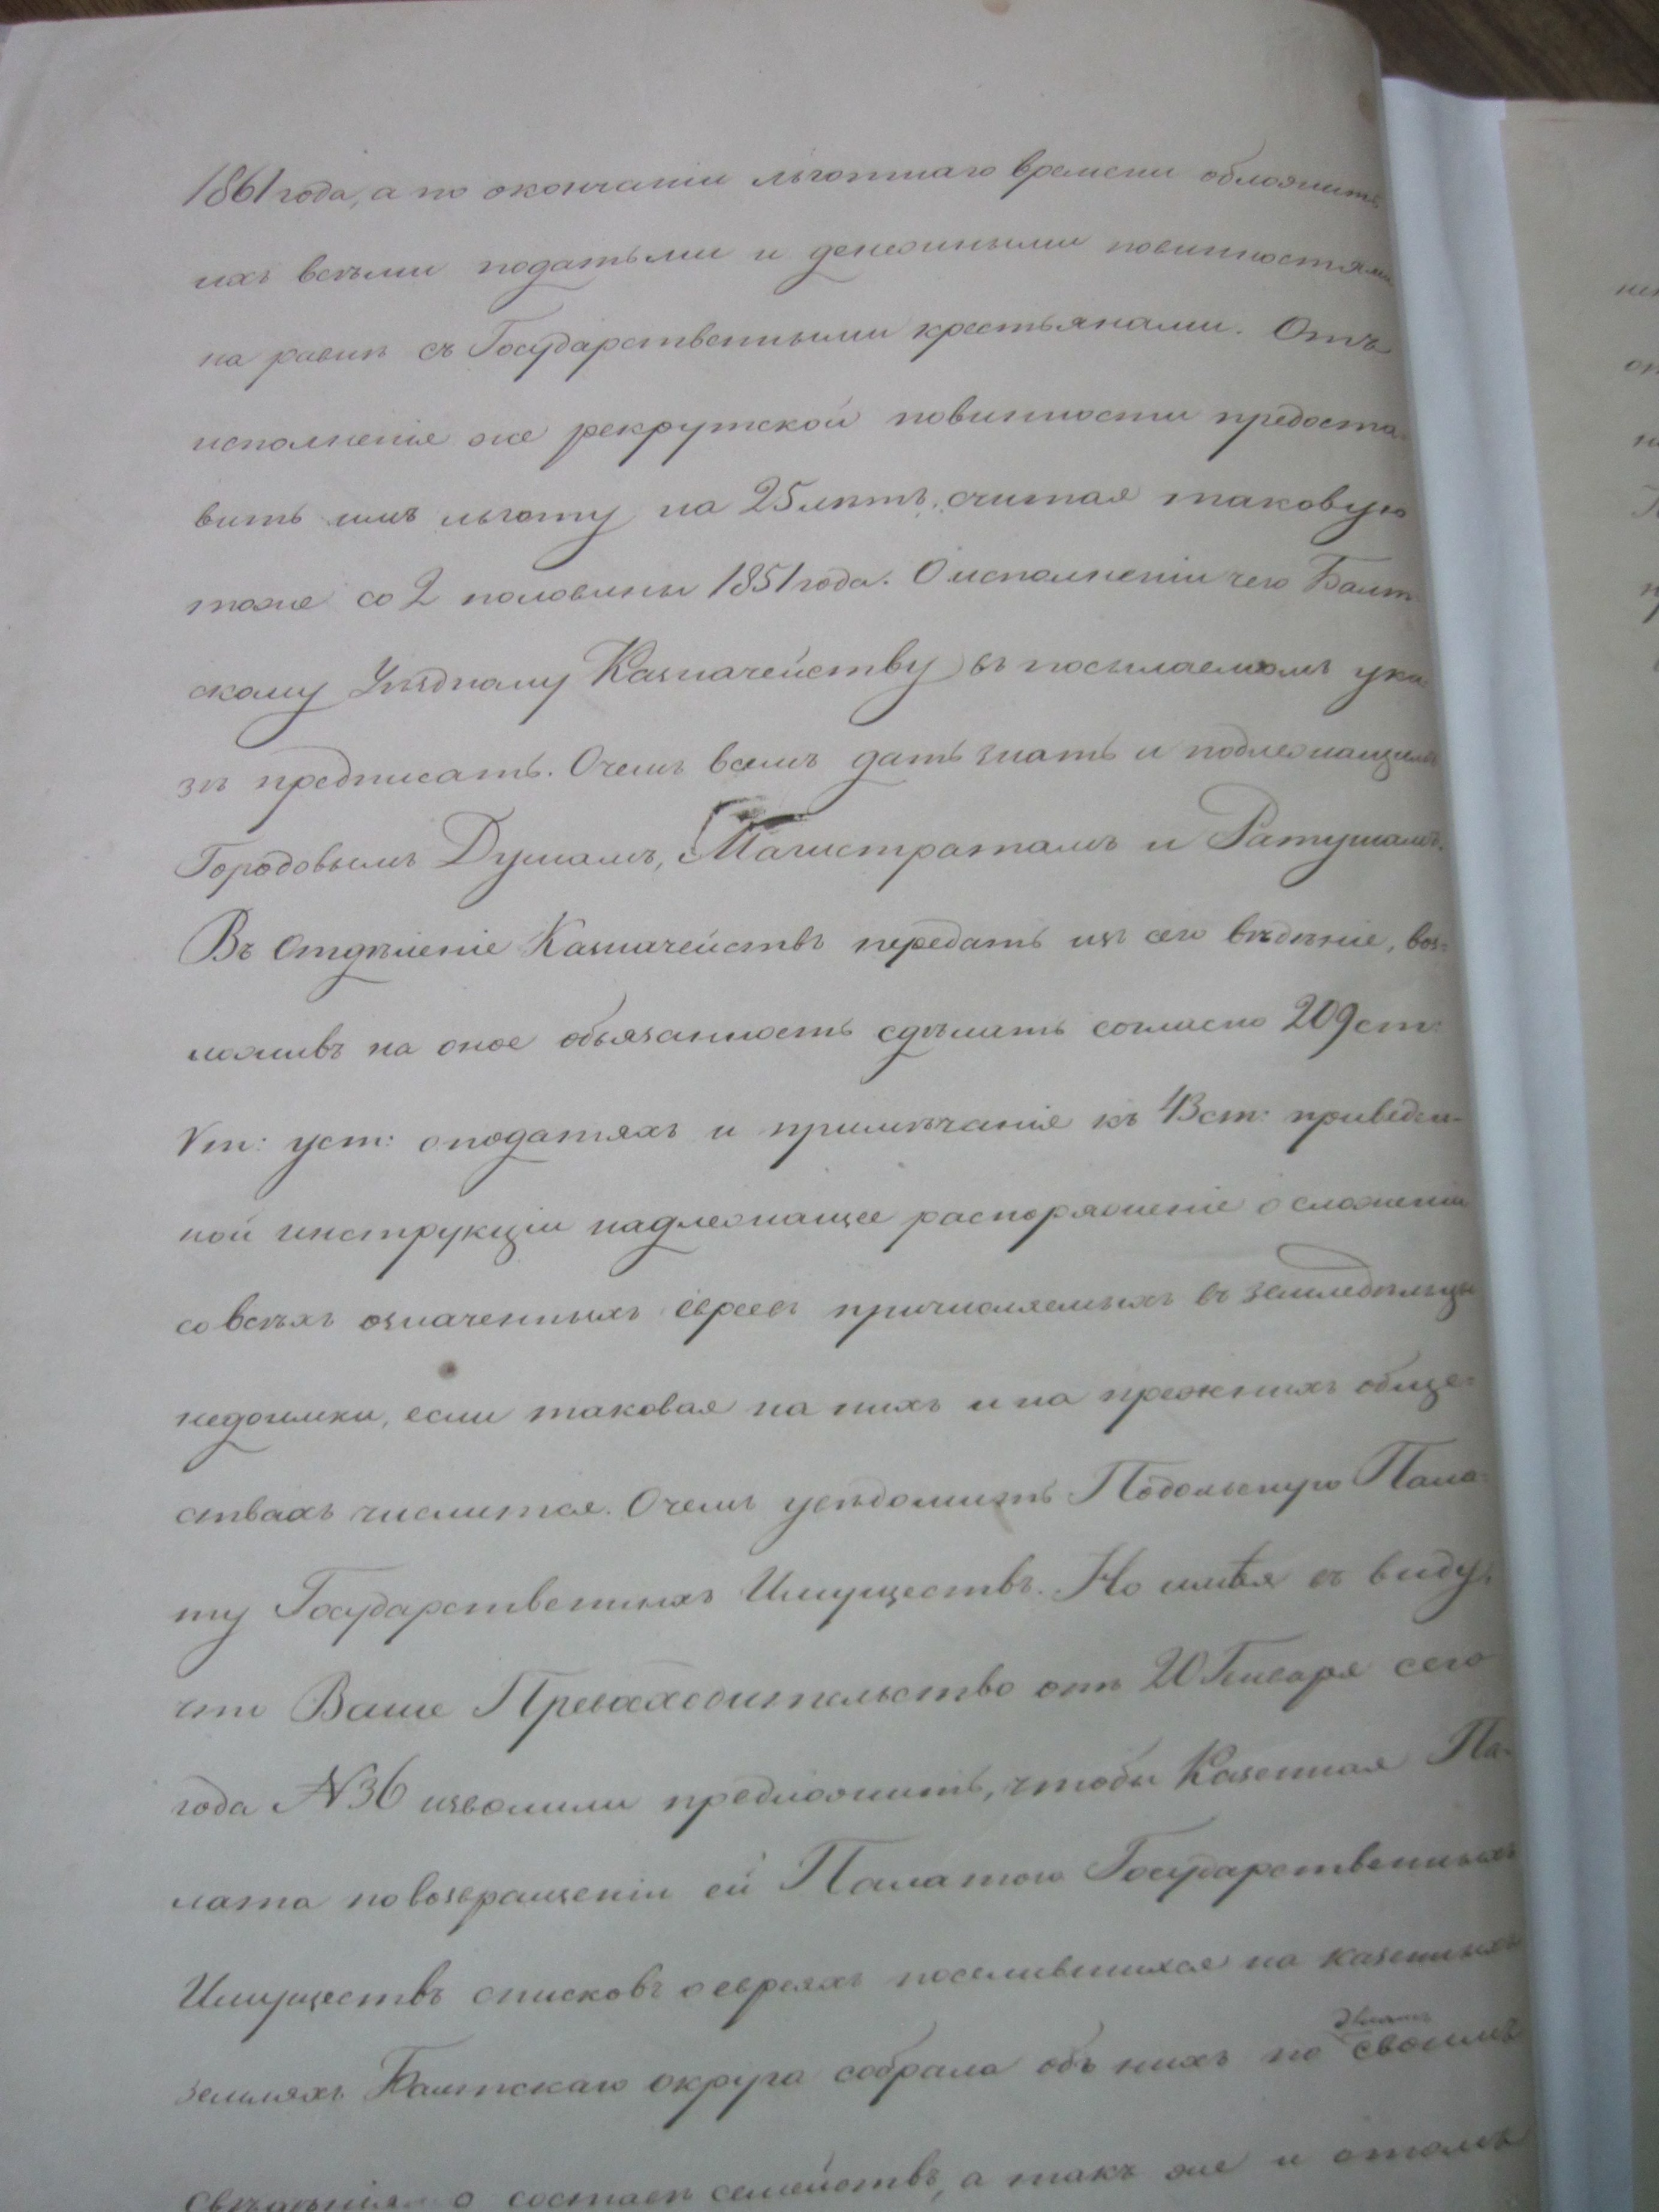 1861 года, а по окончаніи льготнаго времени обложить
ихъ всѣми податьми и денежными повинностями
на равнѣ съ Государственными крестьянами. Отъ
исполненія же рекрутской повинности предоста-
вить имъ льготу на 25 лѣтъ, считая таковую
тоже со 2 половины 1851 года. О исполненіи чего Балт-
скому Уѣздному Казначейству въ посылаемомъ ука-
зѣ предписать. О чемъ всемъ дать знать и подлежащимъ
Городовымъ Думамъ, Магистратамъ и Ратушамъ.
Въ Отдѣленіе Казначействъ передать изъ сего вѣдѣніе, воз-
ложивъ на оное обязанность сдѣлать согласно 209 ст:
V т: уст: о податяхъ и примѣчанія къ 43 ст: приведен-
ной инструкціи надлежащее распоряженіе о сложеніи
со всѣхъ означенныхъ Евреевъ причисляемыхъ въ земледѣльцы
недоимки, если таковая на нихъ и на прежнихъ обще-
ствахъ числится. О чемъ увѣдомить Подольскую Пала-
ту Государственныхъ Имуществъ. Но имѣя въ виду,
что Ваше Превосходительство отъ 20 Генваря сего
года №36 изволили предложить, чтобы Казенная Па-
лата по возвращеніи ей Палатою Государственныхъ
Имуществъ списковъ о евреяхъ поселившихся на казенныхъ
земляхъ Балтскаго округа собрала объ нихъ по своимъ
свѣдѣніям о составѣ семействъ, а такъ же и о томъ